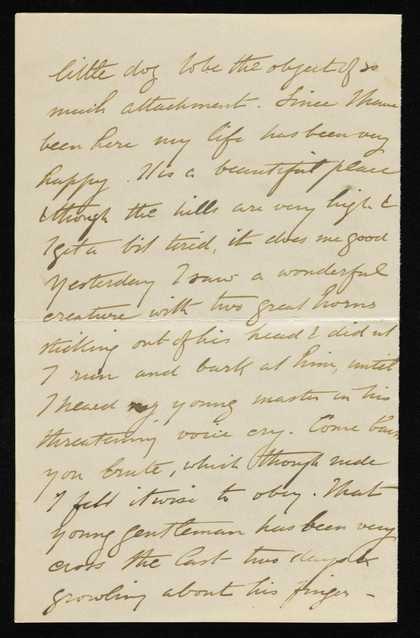 little dog to be the object of so
much attachment. Since I have
been here my life has been very
happy. It is a beautiful place
& though the hills are very high &
I get a bit tired, it does me good
Yesterday I saw a wonderful
creature with two great horns
sticking out of his head & did nt
I run and bark at him, until
I heard my young master in his
threatening voice cry. Come back
you brute, which though rude
I felt it wise to obey. That
young gentleman has been very
cross the last two days &
growling about his finger –